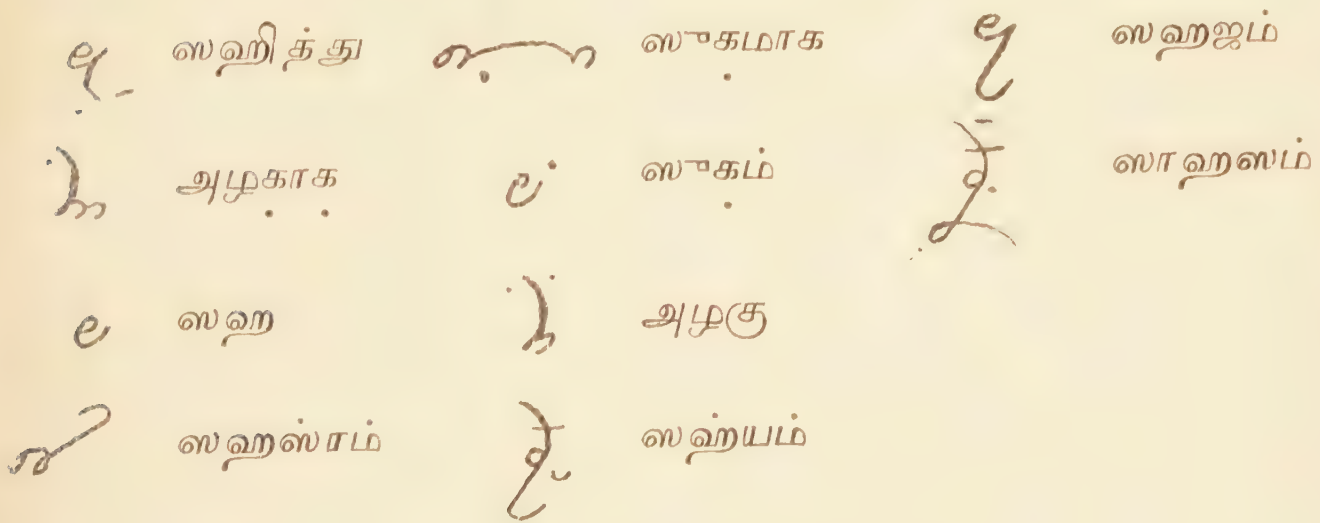 ஸஹித்து ஸுகமாக ஸஹஜம்
அழகாக ஸுகம் ஸாஹஸம்
ஸஹ அழகு
ஸஹஸ்ரம் ஸஹ்யம்